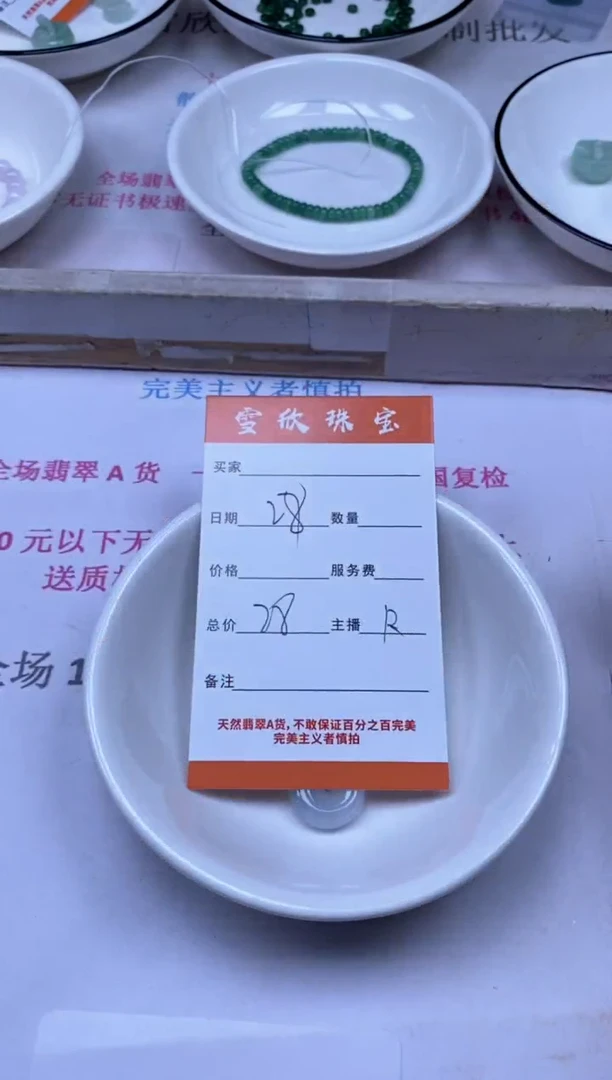 制批发
全场翡
无证书极速
完美主义者慎拍
全场翡翠 A 货 一
国复检
0 元以下无
送质
全场 1
雪欣珠宝
买家
日期 28 数量
价格 服务费
总价 28 主播 R
备注
天然翡翠A货，不敢保证百分之百完美
完美主义者慎拍